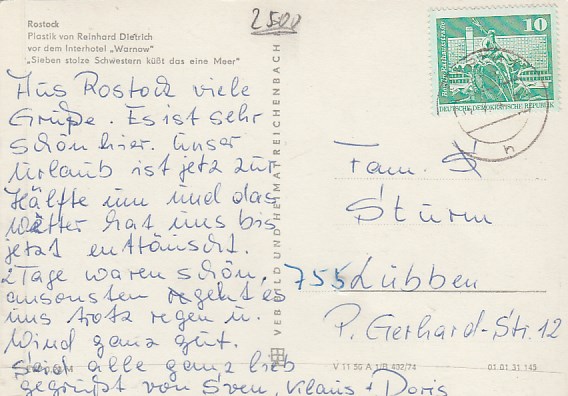 Rostock
Plastik von Reinhard Dietrich
vor dem Interhotel „Warnow"
„Sieben stolze Schwestern küßt das eine Meer"
2500
Aus Rostock viele
Grüße. Es ist sehr
schön hier. Unser
Urlaub ist jetz zur
Hälfte um und das
Wetter hat uns bis
jetzt enttäuscht.
2 Tage waren schön,
ansonsten geht es
uns trotz regen u.
Wind ganz gut.
Seid alle ganz lieb
gegrüßt von Sven, Klaus + Doris
VEB BILD UND HEIMAT REICHENBACH
10
DEUTSCHE DEMOKRATISCHE REPUBLIK
Fam.
Sturm
755 Lübben
P. Gerhard-Str. 12
V 11 50 A 1/B 402/74
01 01 31 145